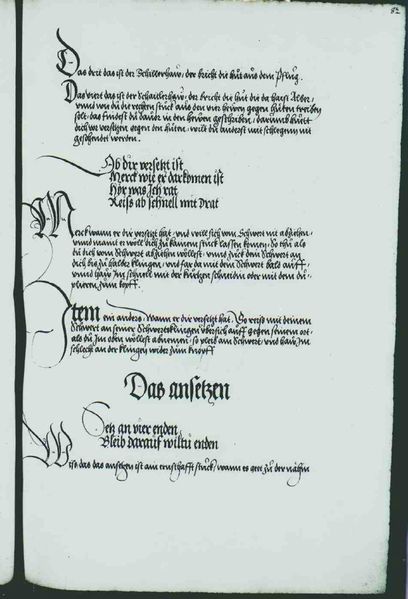 82
Das drit das ist der Schilterhaw, der bricht die hut aus dem Pflug.
Das viert das ist der Schaitlerhaw, der bricht die hut die da haist Alber,
unnd wie du die rechten stuck aus den vier hewen gegen huten treiben
solt, das findest du davor in den hewen geschriben, darumb huett
dich vor versetzen gegen den huten, wilt du anderst mit schlegenn nit
geschendet werden.
Ob dir versetzt ist
Merck wie er darkomen ist
Hor was Ich rat
Reiss ab schnell mit drat
Merck wann er dir versetzt hat, und will sich vom Schwert nit abziehen,
unnd maint er woll dich zu kainem stuck lassen komen, So thu als
du dich vom Schwert abziehen wöllest, unnd zuck dein Schwert an
dich bis zu halber klingen, und far da mit dem Schwert bald auff,
unnd haw Im schnell mit der kurtzen schneiden oder mit dem du-
plieren zum kopff.
Item ein anders, Wann er dir versetzt hat, So reiss mit deinem
Schwert an seiner Schwertsklingen übersich auff gegen seinem ort,
als du Im oben wöllest abnemen, so pleib am Schwert, und haw Im
schlecht an der klingen wider zum kopff
Das ansetzen
Setz an vier enden
Bleib darauf wiltu enden
Wiss das das ansetzen ist ain ernschafft stuck, wann es get zu der nachn